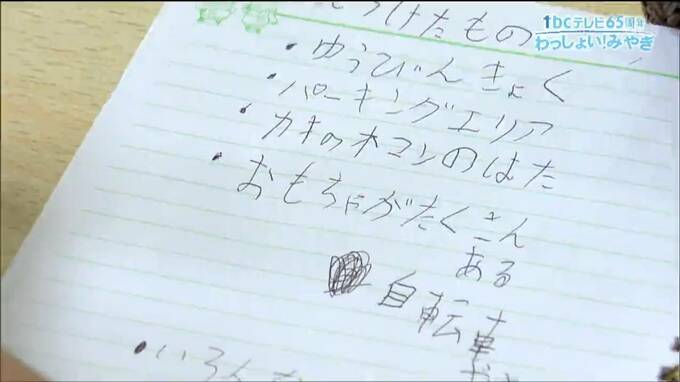 tbcテレビ65周年
わっしょい!みやぎ
つけたもの
・ゆうびんきょく
・パーキングエリア
・カキの のはた
・おもちゃがたくさん
ある
自転車
・いろん